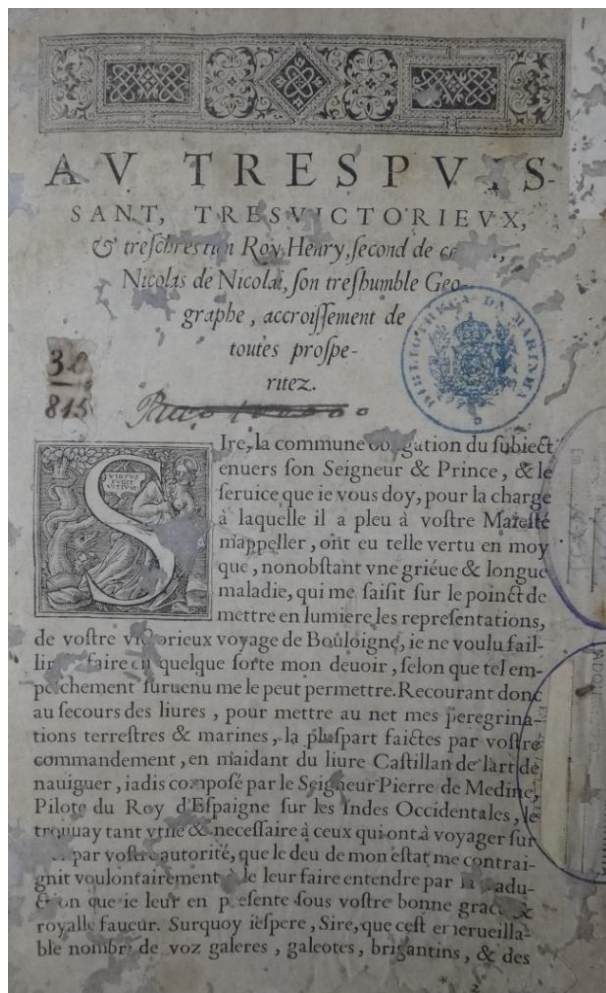 AV TRESPVIS-
SANT, TRESVICTORIEVX,
& treschrestien Roy, Henry, second de ce
Nicolas de Nicolai, son treshumble Geo-
graphe, accroissement de
toutes prospe-
ritez.
815
BIBLIOTHECA DA MARINHA
SIre, la commune obligation du subiect
enuers son Seigneur & Prince, & le
seruice que ie vous doy, pour la charge
à laquelle il a pleu à vostre Maiesté
m'appeller, ont eu telle vertu en moy
que, nonobstant vne griéue & longue
maladie, qui me saisit sur le poinct de
mettre en lumiere les representations,
de vostre victorieux voyage de Bouloigne, ie ne voulu fail-
lir faire en quelque sorte mon deuoir, selon que tel em-
peschement suruenu me le peut permettre. Recourant donc
au secours des liures, pour mettre au net mes peregrina-
tions terrestres & marines, la pluspart faictes par vostre
commandement, en m'aidant du liure Castillan de l'art de
nauiguer, iadis composé par le Seigneur Pierre de Medine,
Pilote du Roy d'Espaigne sur les Indes Occidentales, le
trouuay tant vtile & necessaire à ceux qui ont à voyager sur
par vostre autorité, que le deu de mon estat me contrai-
gnit voulontairement à le leur faire entendre par la tradu-
ction que ie leur en presente sous vostre bonne grace &
royalle faueur. Surquoy i'espere, Sire, que cest emerueilla-
ble nombre de voz galeres, galeotes, brigantins, & des